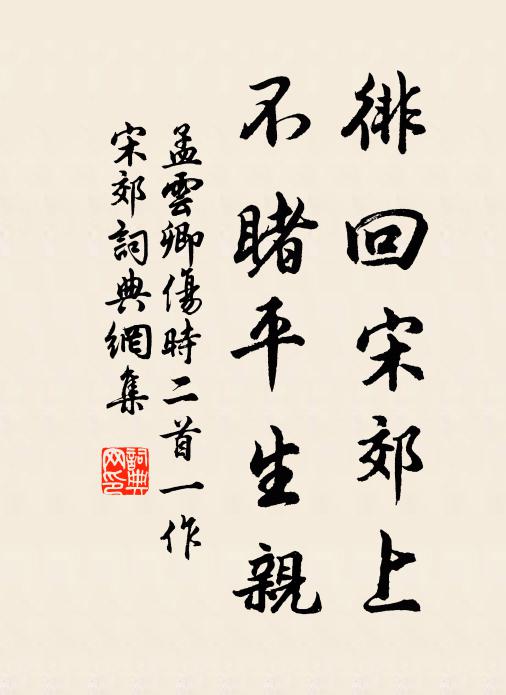 徘回宋郊上
不睹平生親
孟雲卿傷時二首一作
宋郊詞典網集
詞典
网印